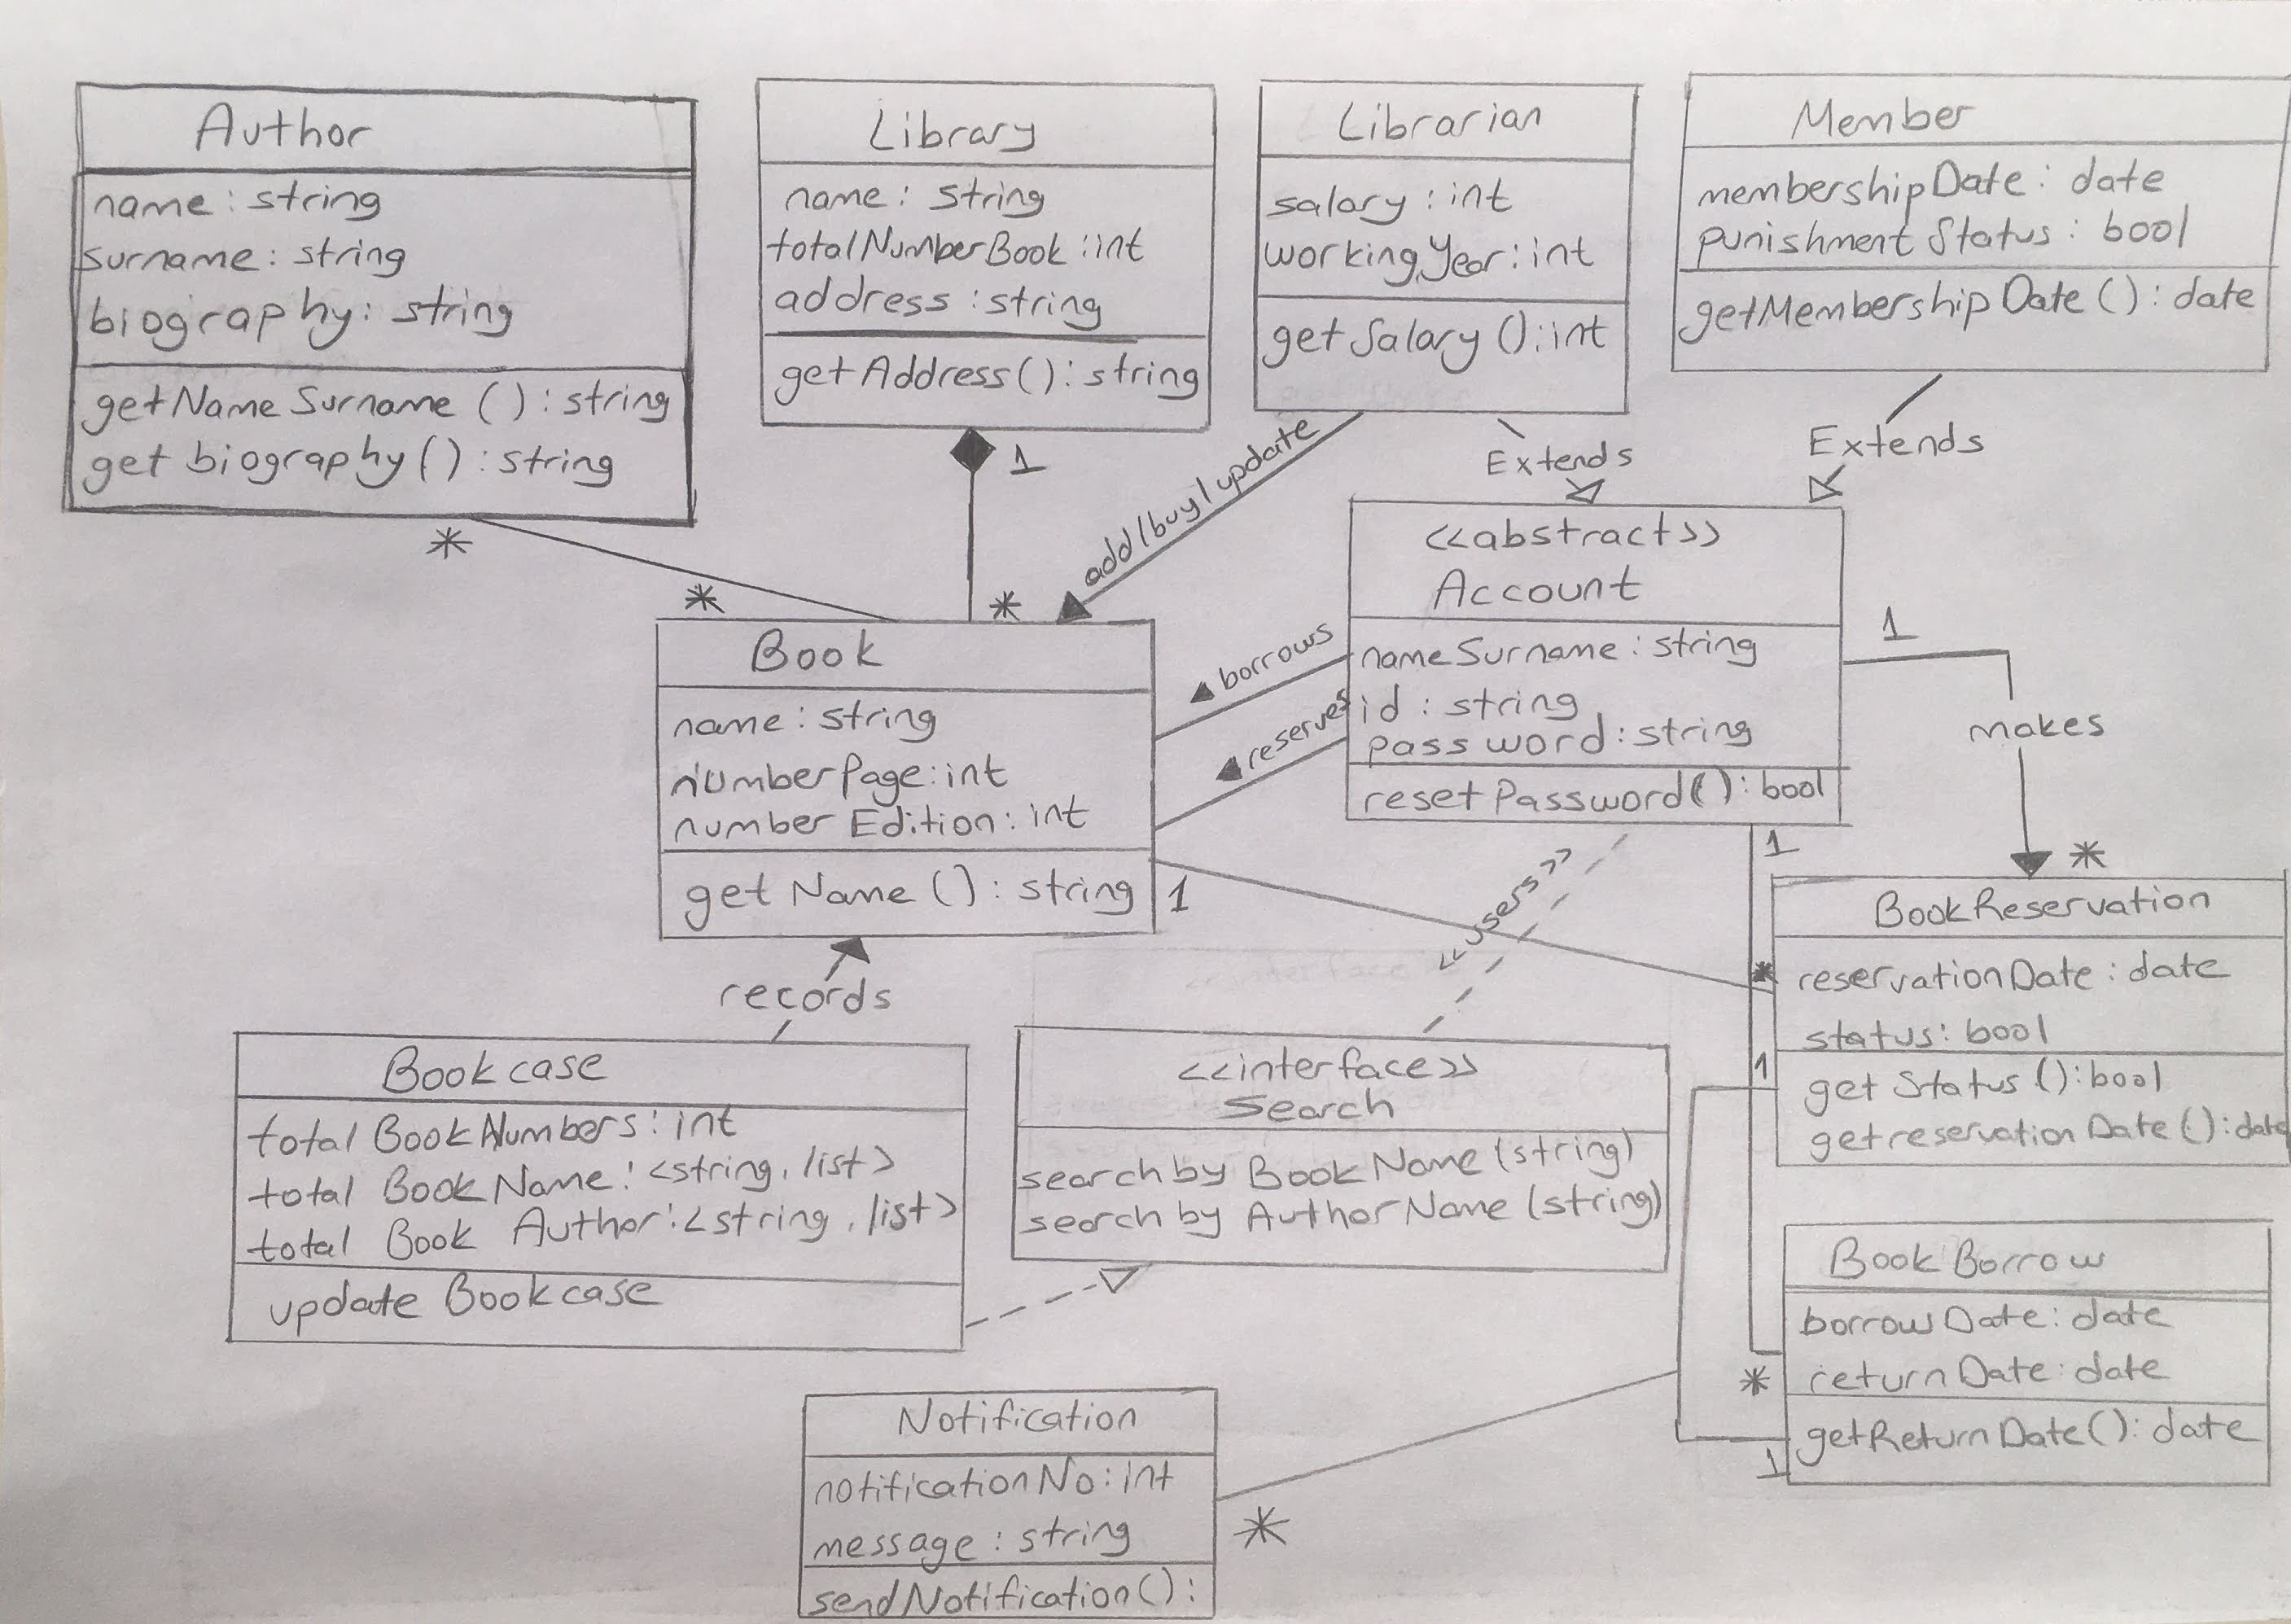 Author
name: string
surname: string
biography: string
getNameSurname (): string
get biography(): string
Library
name: string
totalNumberBook: int
address: string
getAddress(): string
Librarian
salary: int
workingYear: int
getSalary (): int
Member
membershipDate: date
punishment Status: bool
getMembershipDate(): date
*
*
1
*
add/buy/update
Extends
Extends
<<abstract>>
Account
nameSurname: string
id: string
password: string
resetPassword(): bool
Book
name: string
numberPage: int
number Edition: int
get Name (): string
borrows
reserves
1
makes
*
1
*
1
*
<<users>>
records
BookReservation
reservationDate: date
status: bool
get Status (): bool
getreservationDate(): date
1
Bookcase
total BookNumbers: int
total BookName: <string, list>
total Book Author: <string, list>
update Bookcase
<<interface>>
Search
search by BookName (string)
search by AuthorName (string)
BookBorrow
borrowDate: date
returnDate: date
getReturnDate(): date
1
Notification
notificationNo: int
message: string
sendNotification():
*